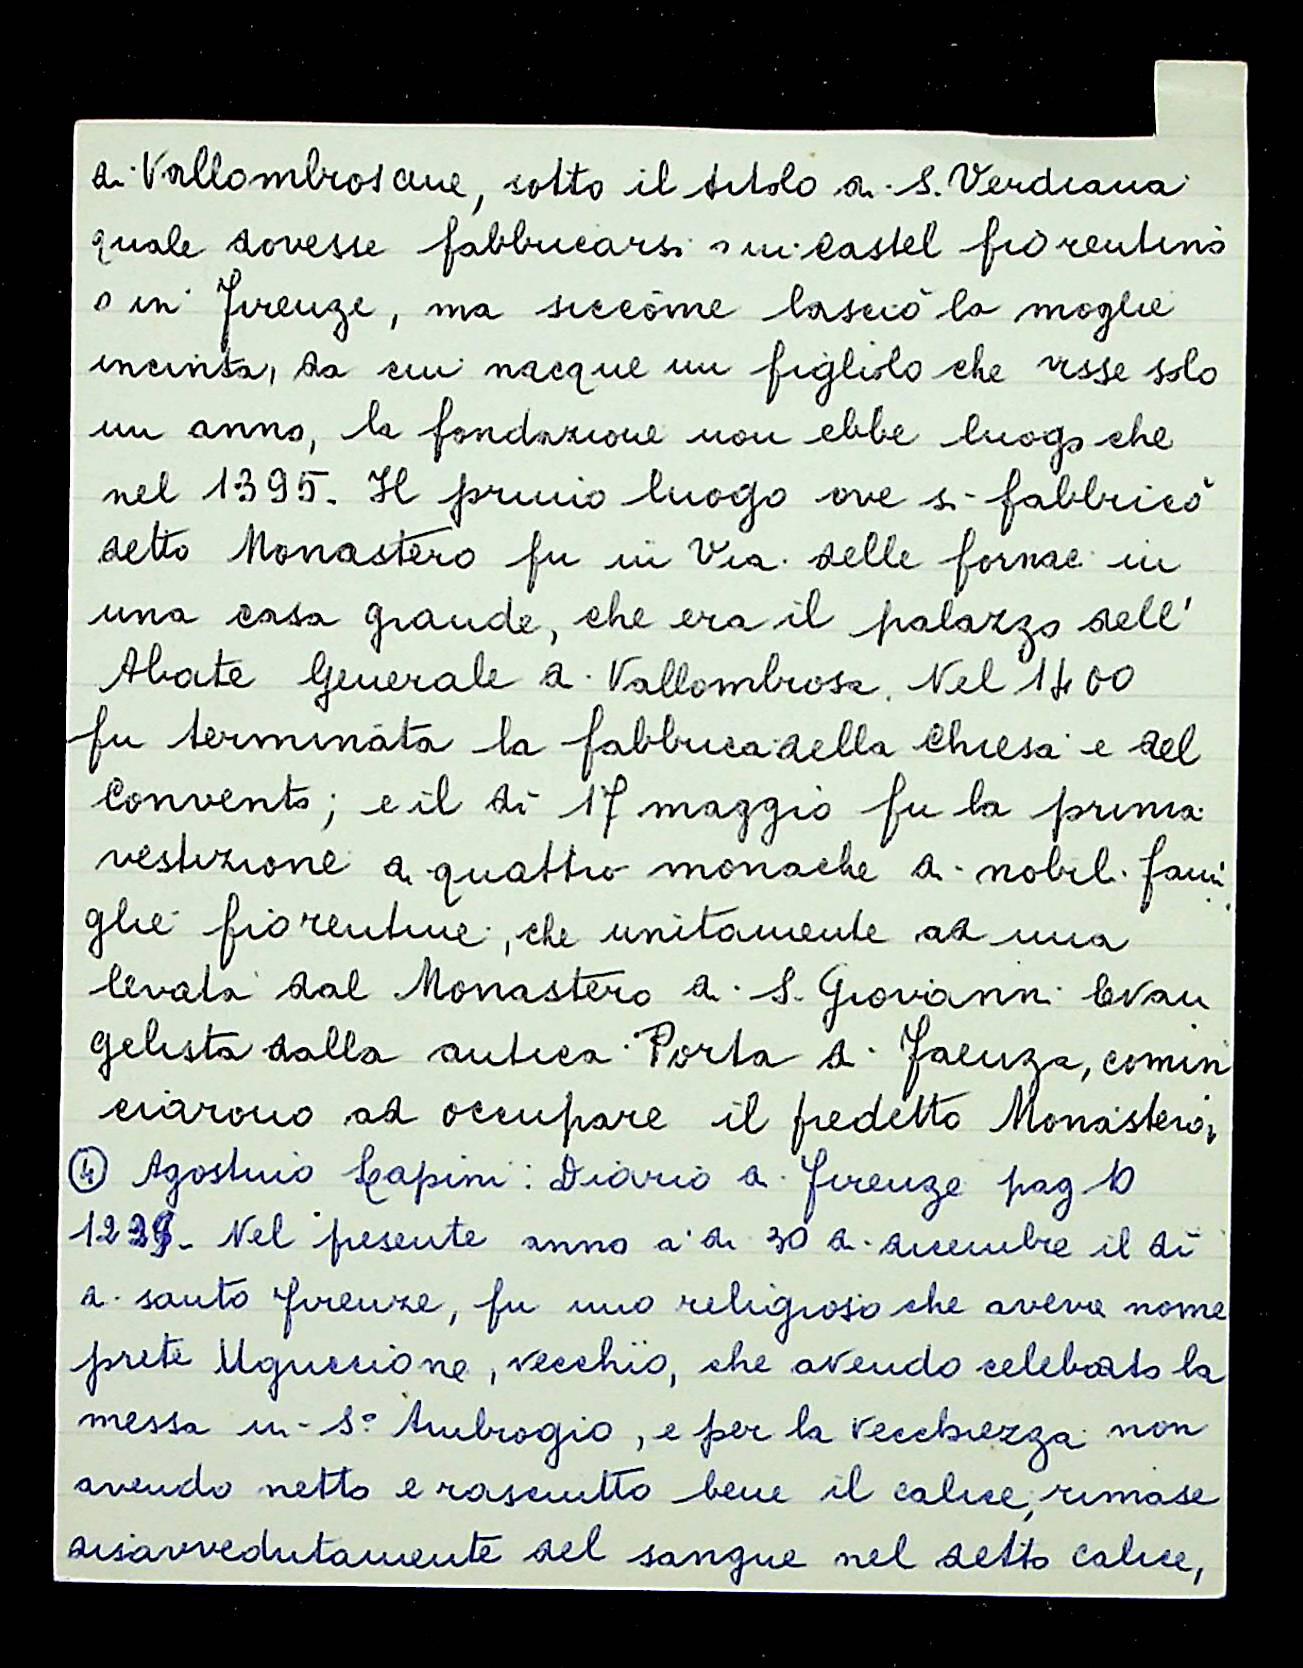 di Vallombrosane, sotto il titolo di S. Verdiana
quale dovesse fabbricarsi o in Castel fiorentino
o in Firenze, ma siccome lasciò la moglie
incinta, da cui nacque un figliolo che visse solo
un anno, la fondazione non ebbe luogo che
nel 1395. Il primo luogo ove si fabbricò
detto Monastero fu in Via delle fornaci in
una casa grande, che era il palazzo dell'
Abate Generale di Vallombrosa. Nel 1400
fu terminata la fabbrica della Chiesa e del
Convento; e il dì 17 maggio fu la prima
vestizione di quattro monache di nobili fami
glie fiorentine, che unitamente ad una
levata dal Monastero di S. Giovanni Evan
gelista dalla antica Porta di Faenza, comin
ciarono ad occupare il predetto Monastero.
④ Agostino Lapini: Diario di Firenze pag 10
Nel presente anno a di 30 di dicembre il dì
di santo Firenze, fu uno religioso che aveva nome
prete Uguccione, vecchio, che avendo celebrato la
messa in S.º Ambrogio, e per la vecchiezza non
avendo netto e rasciutto bene il calice, rimase
disavvedutamente del sangue nel detto calice,